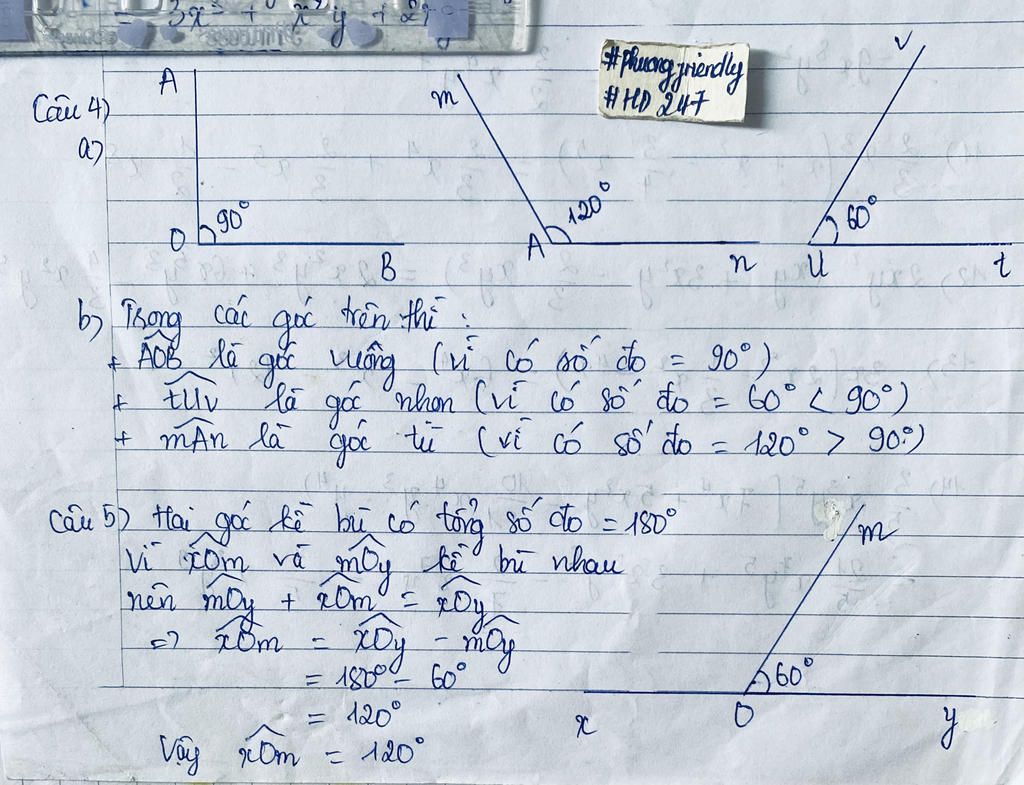 = 3x³ + x²y + 2x
#phuongfriendly
#HD 247
Câu 4)
a)
A
O
90°
B
m
A
120°
n
v
U
60°
t
b) Trong các góc trên thì :
+ AOB là góc vuông (vì có số đo = 90°)
+ tUv là góc nhọn (vì có số đo = 60° < 90°)
+ mAn là góc tù (vì có số đo = 120° > 90°)
Câu 5) Hai góc kề bù có tổng số đo = 180°
Vì xOm và mOy kề bù nhau
nên mOy + xOm = xOy
=> xOm = xOy - mOy
= 180° - 60°
= 120°
Vậy xOm = 120°
m
60°
x
O
y